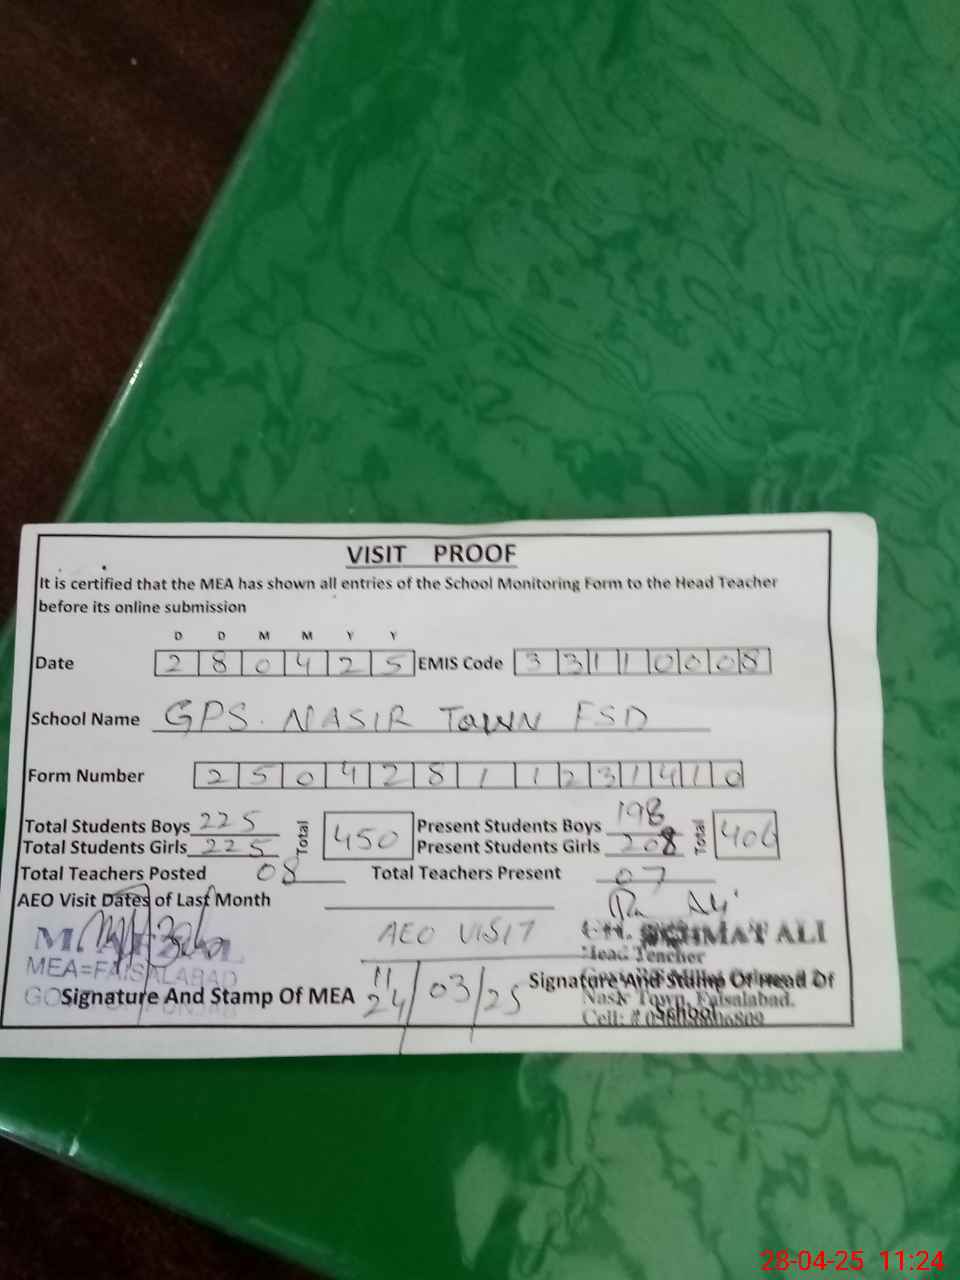 VISIT PROOF
It is certified that the MEA has shown all entries of the School Monitoring Form to the Head Teacher
before its online submission
D D M M Y Y
Date 2 8 0 4 2 5 EMIS Code 3 3 1 1 0 0 0 8
School Name GPS. NASIR TOWN FSD
Form Number 2 5 0 4 2 8 1 1 2 3 1 4 1 0
Total Students Boys 225 Total 450 Present Students Boys 198 Total 406
Total Students Girls 225 Present Students Girls 208
Total Teachers Posted 08 Total Teachers Present 07
AEO Visit Dates of Last Month
AEO VISIT
MEA=FAISALABAD
ALI
Head Teacher
Signature And Stamp Of MEA 11 24/03/25 Signature And Stamp Of Head Of
School
Town, Faisalabad.
Cell: #
28-04-25 11:24